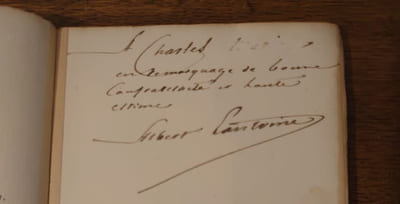 A Charles
en témoignage de bonne
Confraternité et haute
estime
Albert Lantoine